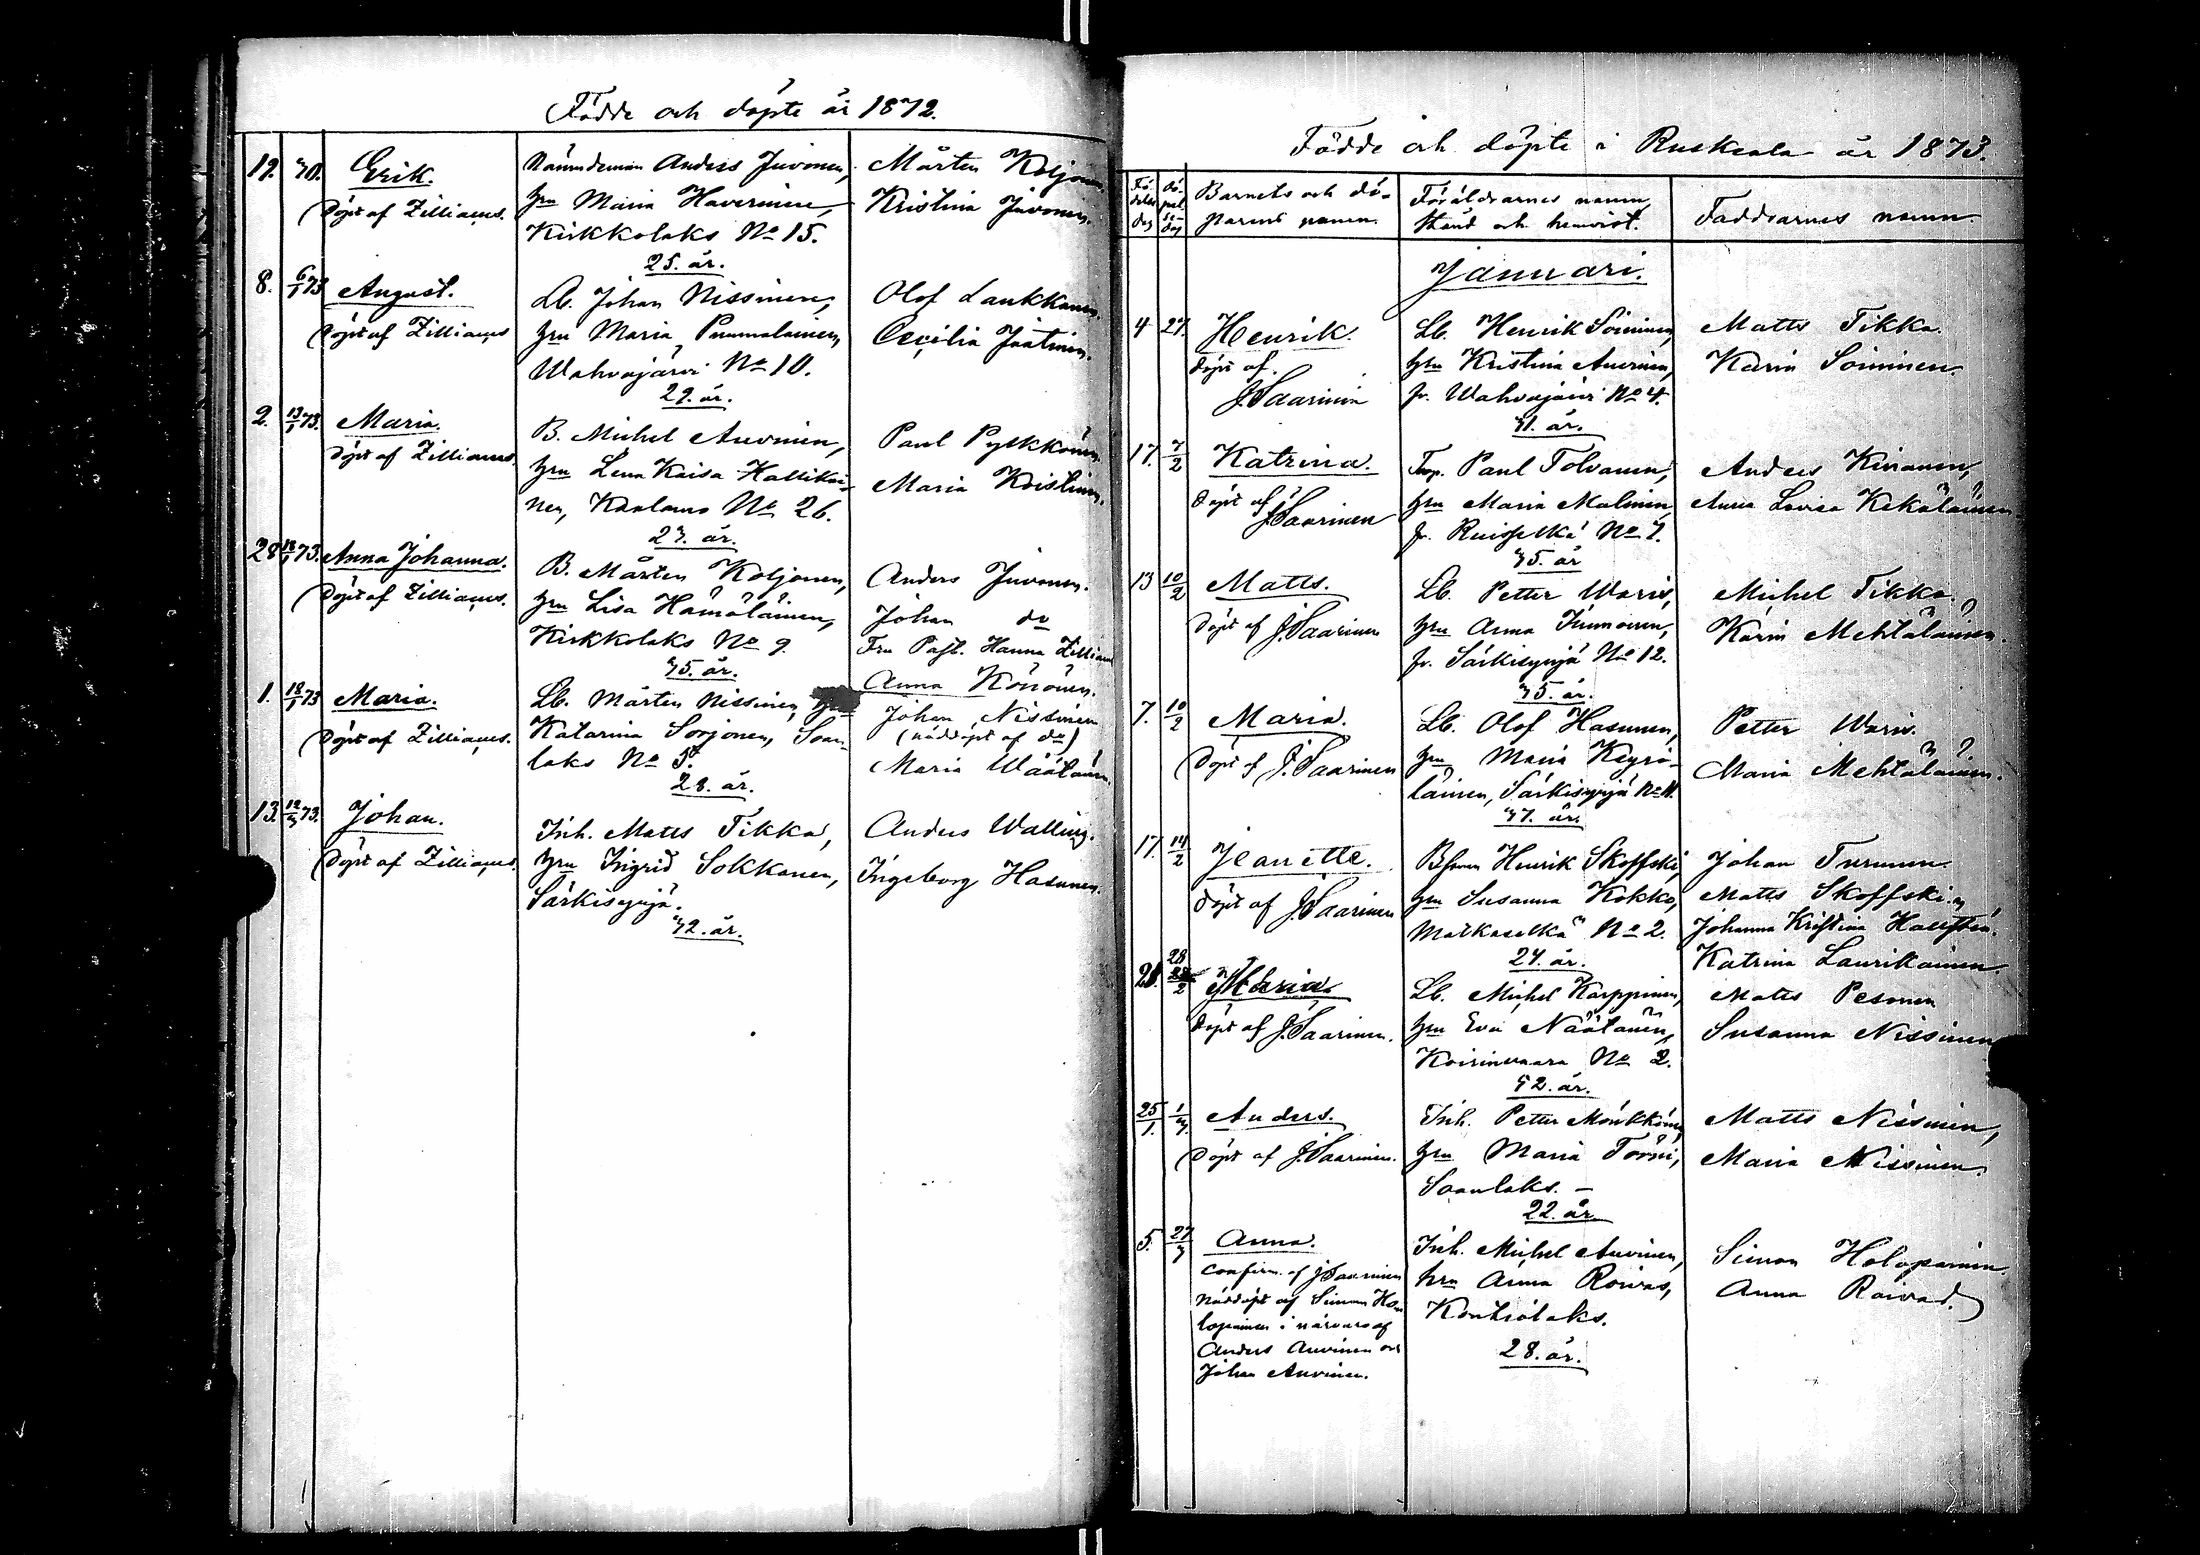 Födde och döpte år 1872.
19. 30. Erik. Nämndeman Anders Juvonen, Mårten Koljonen
Döpt af Zilliacus. hu Maria Haverinen, Kristina Juvonen.
Kirkkolaks No 15.
25. år.
8. 6/1 73 August. Lb. Johan Nissinen, Olof Laukkanen.
Döpt af Zilliacus hu Maria Puumalainen, Cecilia Jäätinen.
Wahvajärvi No 10.
29. år.
2. 13/1 73. Maria. B. Michel Auvinen, Paul Pylkkönen
Döpt af Zilliacus. hu Lena Kaisa Hallikai- Maria Kristina
nen, Kaalamo No 26.
27. år.
28 18/1 73. Anna Johanna. B. Mårten Koljonen, Anders Juvonen.
Döpt af Zilliacus. hu Lisa Hämäläinen, Johan do
Kirkkolaks No 9. Fru Past. Hanna Zilliacus
35. år. Anna Könönen.
1. 18/1 73 Maria. Lb. Mårten Nissinen, hu Johan Nissinen
Döpt af Zilliacus. Katarina Sorjonen, Soan- (nöddöpt af do)
laks No 5. Maria Wäätäinen
28. år.
13. 12/3 73. Johan. Inh. Matts Tikka, Anders Walling.
Döpt af Zilliacus. hu Ingrid Sokkanen, Ingeborg Hasunen.
Särkisyrjä.
32. år.
Födde och döpte i Ruskeala år 1873.
Fö- delse dag Dö- pel- se- dag Barnets och dö- Föräldrarnes namn, Faddrarnes namn.
parens namn. stånd och hemvist.
Januari.
4 27. Henrik. Lb. Henrik Soininen, Matts Tikka.
Döpt af. hu Kristina Auvinen, Karin Soininen.
J. Saarinen fr. Wahvajärvi No 4.
41. år.
17. 7/2 Katrina. Torp. Paul Tolvanen, Anders Kinanen,
Döpt af hu Maria Malinen, Anna Lovisa Kekäläinen.
J. Saarinen fr. Ruisselkä No 7.
35. år
13 10/2 Matts. Lb. Petter Waris, Michel Tikka.
Döpt af J. Saarinen hu Anna Immonen, Karin Mehtäläinen.
fr. Särkisyrjä No 12.
35. år.
7. 10/2 Maria. Lb. Olof Hasunen, Petter Waris.
Döpt af J. Saarinen hu Maria Keyri- Maria Mehtäläinen.
läinen, Särkisyrjä No 11.
37. år.
17. 14/2 Jeanette. Henrik Skoffski Johan Turunen.
Döpt af J. Saarinen hu Susanna Kokko, Matts Skoffski.
Matkaselkä No 2. Johanna Kristina Hallstén.
24. år. Katrina Laurikainen.
28. 28/2 Maria Lb. Michel Karppinen, Matts Pesonen
Döpt af J. Saarinen. hu Eva Näätänen, Susanna Nissinen
Koirinvaara No 2.
42. år.
25/1. 1/3 Anders. Inh. Petter Mönkkönen, Matts Nissinen,
Döpt af J. Saarinen. hu Maria Törni, Maria Nissinen.
Soanlaks. –
22. år
5. 27/3 Anna. Inh. Michel Auvinen, Simon Holopainen.
Confirm. af J. Saarinen hu Anna Roivas, Anna Roivas.
Nöddöpt af Simon Ho- Kontiolaks.
lopainen i närvaro af
Anders Auvinen och 28. år.
Johan Auvinen.